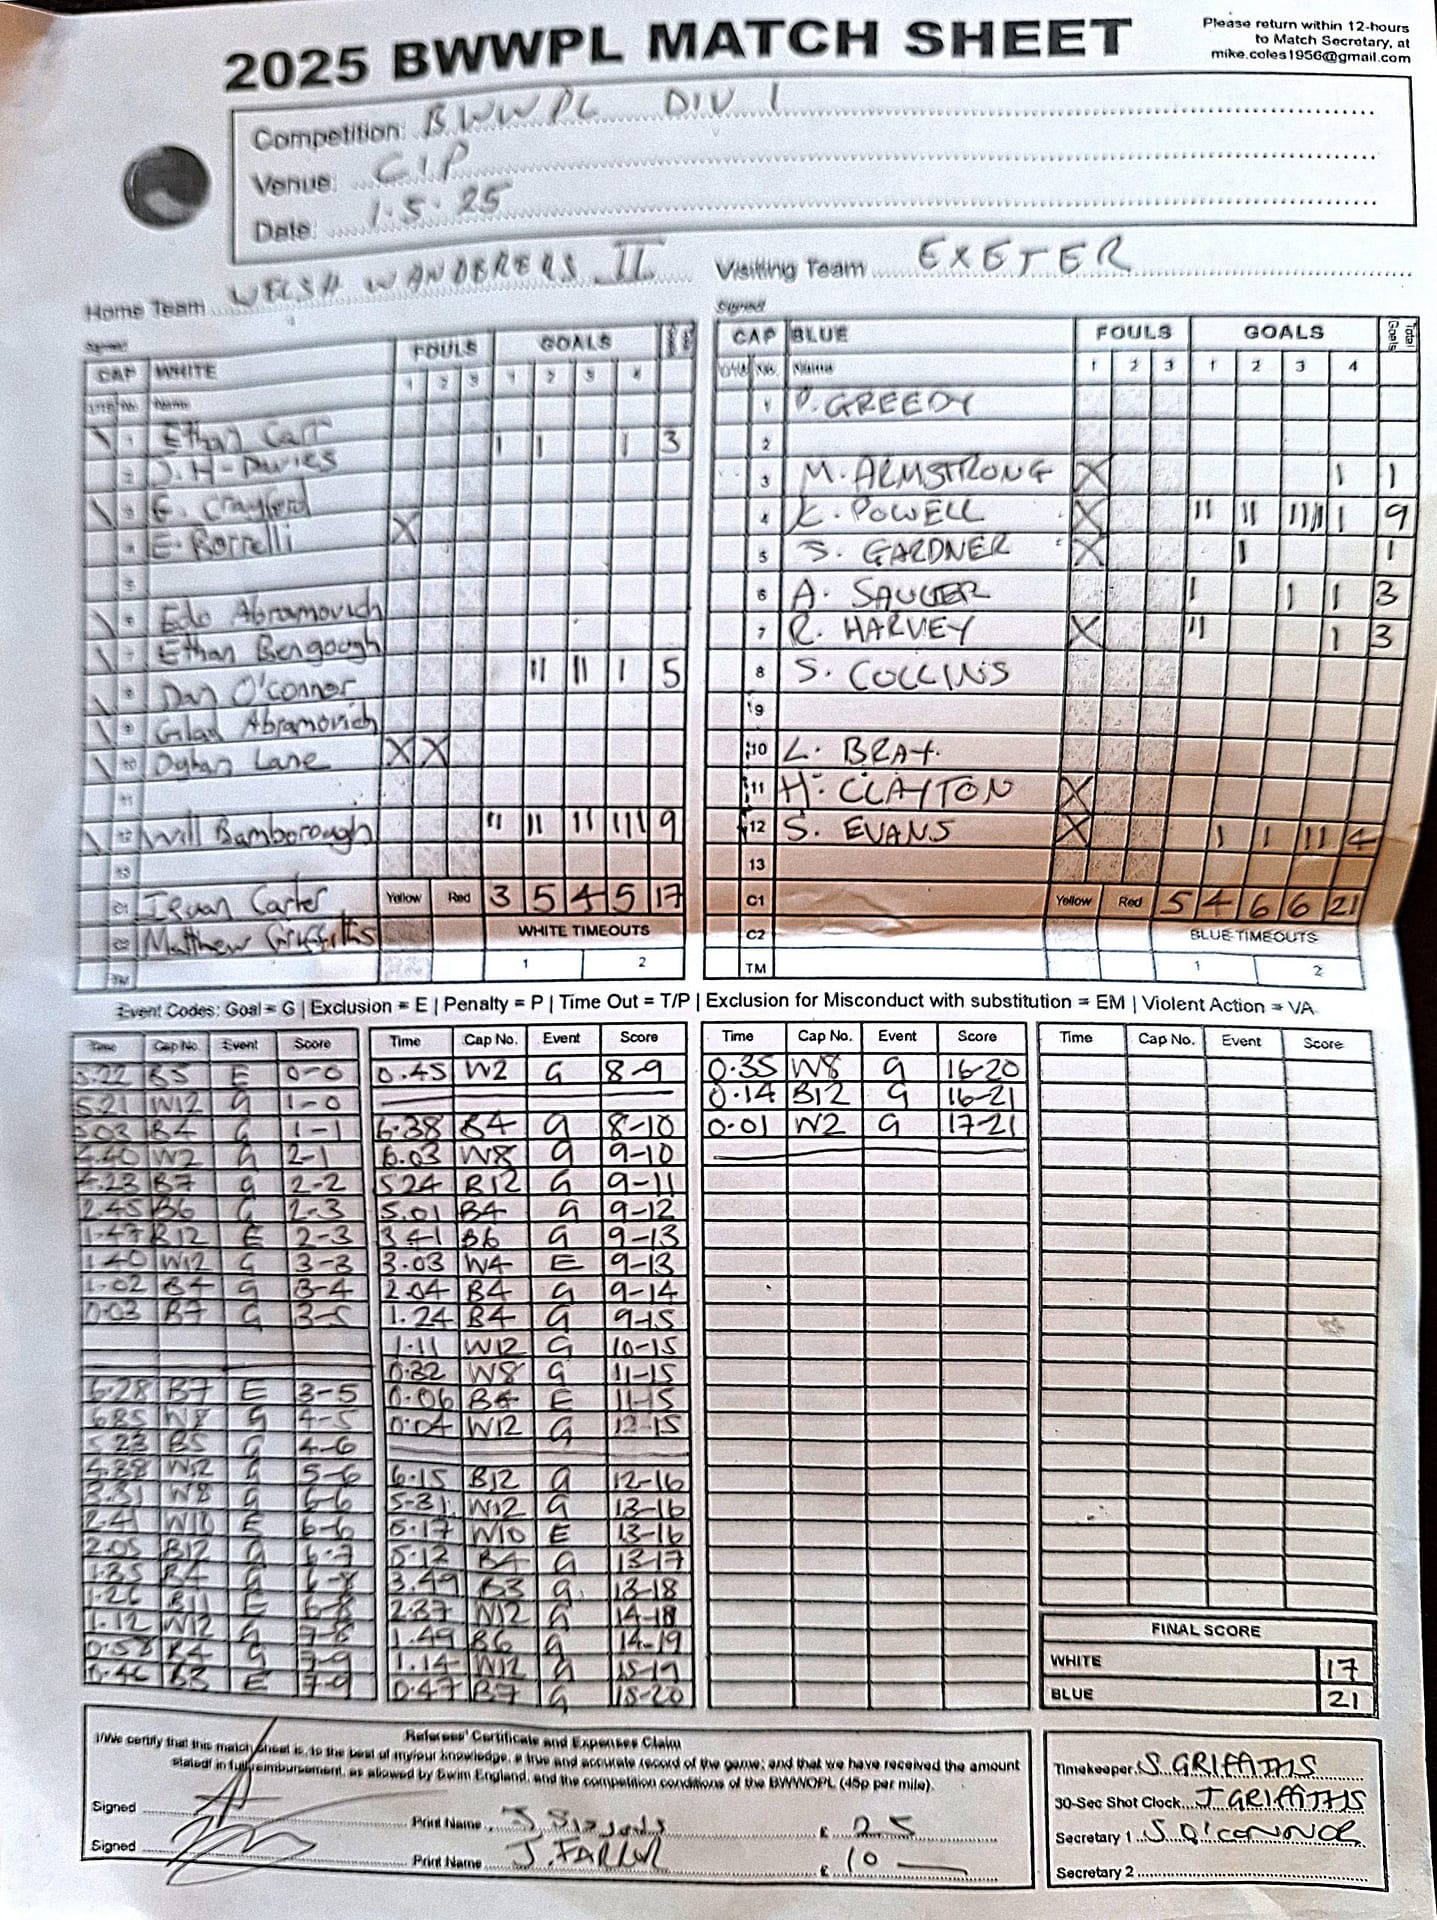 2025 BWWPL MATCH SHEET
Please return within 12-hours
to Match Secretary, at
mike.coles1956@gmail.com
Competition: BWWPL DIV 1
Venue: CIP
Date: 1.5.25
Home Team WELSH WANDERERS II
Visiting Team EXETER
Signed
CAP WHITE FOULS GOALS
Name 1 2 3 1 2 3 4
1 Ethan Carr
2 J. H-Davies | | | 3
3 E. Crayford
4 E. Borrelli X
5
6 Edo Abramovich
7 Ethan Bengough
8 Dan O'connor || || | 5
9 Gilad Abramovich
10 Dylan Lane X X
11
12 Will Bamborough || || || ||| 9
13
C1 Iguan Carter Yellow Red 3 5 4 5 17
C2 Matthew Griffiths WHITE TIMEOUTS
TM 1 2
Signed
CAP BLUE FOULS GOALS Total Goals
No. Name 1 2 3 1 2 3 4
1 P. GREEDY
2
3 M. ARMSTRONG X | 1
4 K. POWELL X || || |||| | 9
5 S. GARDNER X | 1
6 A. SAUGER | | | 3
7 R. HARVEY X || | 3
8 S. COLLINS
9
10 L. BRAY.
11 H. CLAYTON X
12 S. EVANS X | | || 4
13
C1 Yellow Red 5 4 6 6 21
C2 BLUE TIMEOUTS
TM 1 2
Event Codes: Goal = G | Exclusion = E | Penalty = P | Time Out = T/P | Exclusion for Misconduct with substitution = EM | Violent Action = VA
Time Cap No. Event Score
5.22 B5 E 0-0
5.21 W12 G 1-0
5.03 B4 G 1-1
4.40 W2 G 2-1
4.23 B7 G 2-2
2.45 B6 G 2-3
1.47 B12 E 2-3
1.40 W12 G 3-3
1.02 B4 G 3-4
0.03 B7 G 3-5
6.28 B7 E 3-5
W8 G 4-5
5.23 B5 G 4-6
4.38 W12 G 5-6
3.31 W8 G 6-6
2.41 W10 E 6-6
2.05 B12 G 6-7
1.35 B4 G 6-8
1.26 B11 E 6-8
1.12 W12 G 7-8
0.58 B4 G 7-9
0.46 B3 E 7-9
Time Cap No. Event Score
0.45 W2 G 8-9
6.38 B4 G 8-10
6.03 W8 G 9-10
5.24 B12 G 9-11
5.01 B4 G 9-12
3.41 B6 G 9-13
3.03 W4 E 9-13
2.04 B4 G 9-14
1.24 B4 G 9-15
1.11 W12 G 10-15
0.32 W8 G 11-15
0.06 B4 E 11-15
0.04 W12 G 12-15
6.15 B12 G 12-16
5.31 W12 G 13-16
5.17 W10 E 13-16
5.12 B4 G 13-17
3.49 B3 G 13-18
2.37 W12 G 14-18
1.49 B6 G 14-19
1.14 W12 G 15-19
0.47 B7 G 15-20
Time Cap No. Event Score
0.35 W8 G 16-20
0.14 B12 G 16-21
0.01 W2 G 17-21
Time Cap No. Event Score
FINAL SCORE
WHITE 17
BLUE 21
Referees' Certificate and Expenses Claim
I/We certify that this match sheet is, to the best of my/our knowledge, a true and accurate record of the game; and that we have received the amount
stated in full reimbursement, as allowed by Swim England, and the competition conditions of the BWWOPL (45p per mile).
Signed Print Name £ 25
Signed Print Name J. FARLOR £ 10
Timekeeper S. GRIFFITHS
30-Sec Shot Clock J GRIFFITHS
Secretary 1 S O'CONNOR
Secretary 2